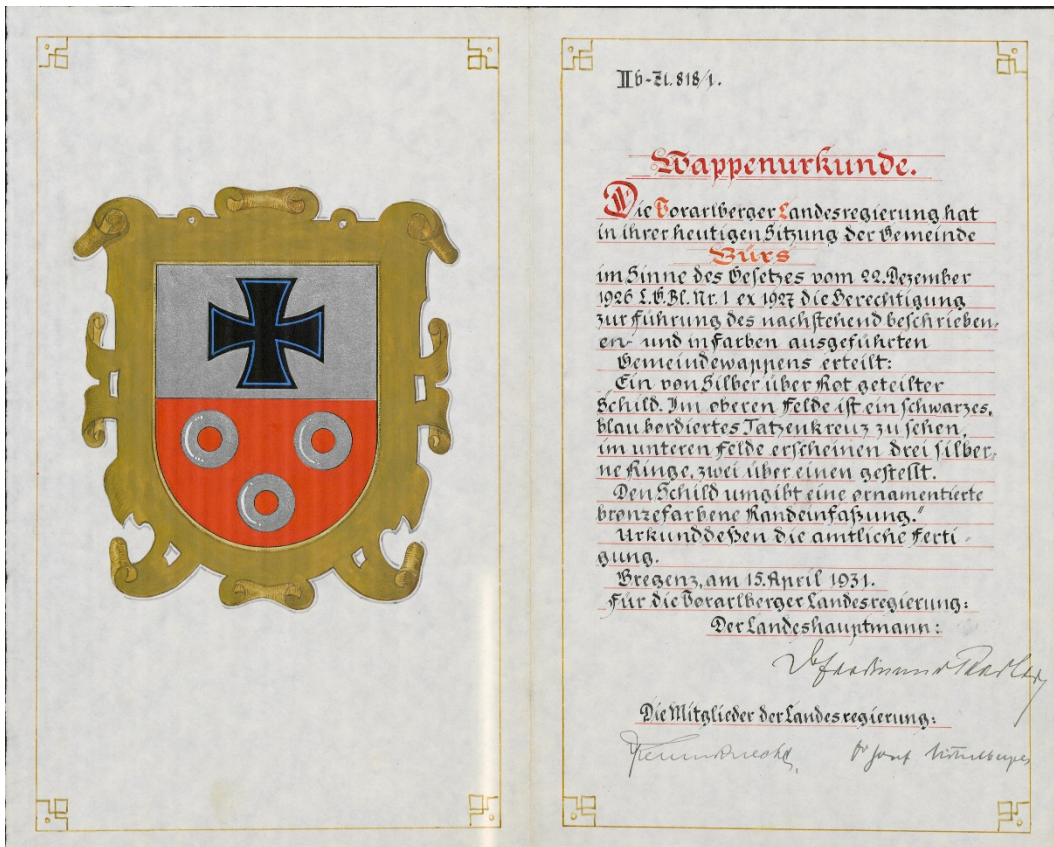 IIb-Zl. 818/1.
Wappenurkunde.
Die Vorarlberger Landesregierung hat
in ihrer heutigen Sitzung der Gemeinde
Bürs
im Sinne des Gesetzes vom 22. Dezember
1926 L.G.Bl. Nr. 1 ex 1927 die Berechtigung
zur Führung des nachstehend beschrieben-
en- und in Farben ausgeführten
Gemeindewappens erteilt:
Ein von Silber über Rot geteilter
Schild. Im oberen Felde ist ein schwarzes,
blau bordiertes Tatzenkreuz zu sehen,
im unteren Felde erscheinen drei silber-
ne Ringe, zwei über einen gestellt.
Den Schild umgibt eine ornamentierte
bronzefarbene Randeinfaßung."
Urkunddeßen die amtliche Ferti-
gung.
Bregenz, am 15. April 1931.
Für die Vorarlberger Landesregierung:
Der Landeshauptmann:
Die Mitglieder der Landesregierung: